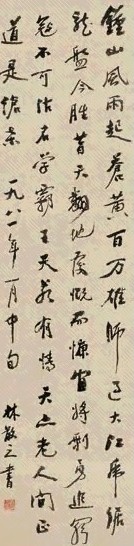 鍾山風雨起蒼黄百万雄師過大江虎踞
龍盤今勝昔天翻地覆慨而慷宜將剩勇追窮
寇不可沽名學霸王天若有情天亦老人間正
道是滄桑 一九八一年一月中旬 林散之書